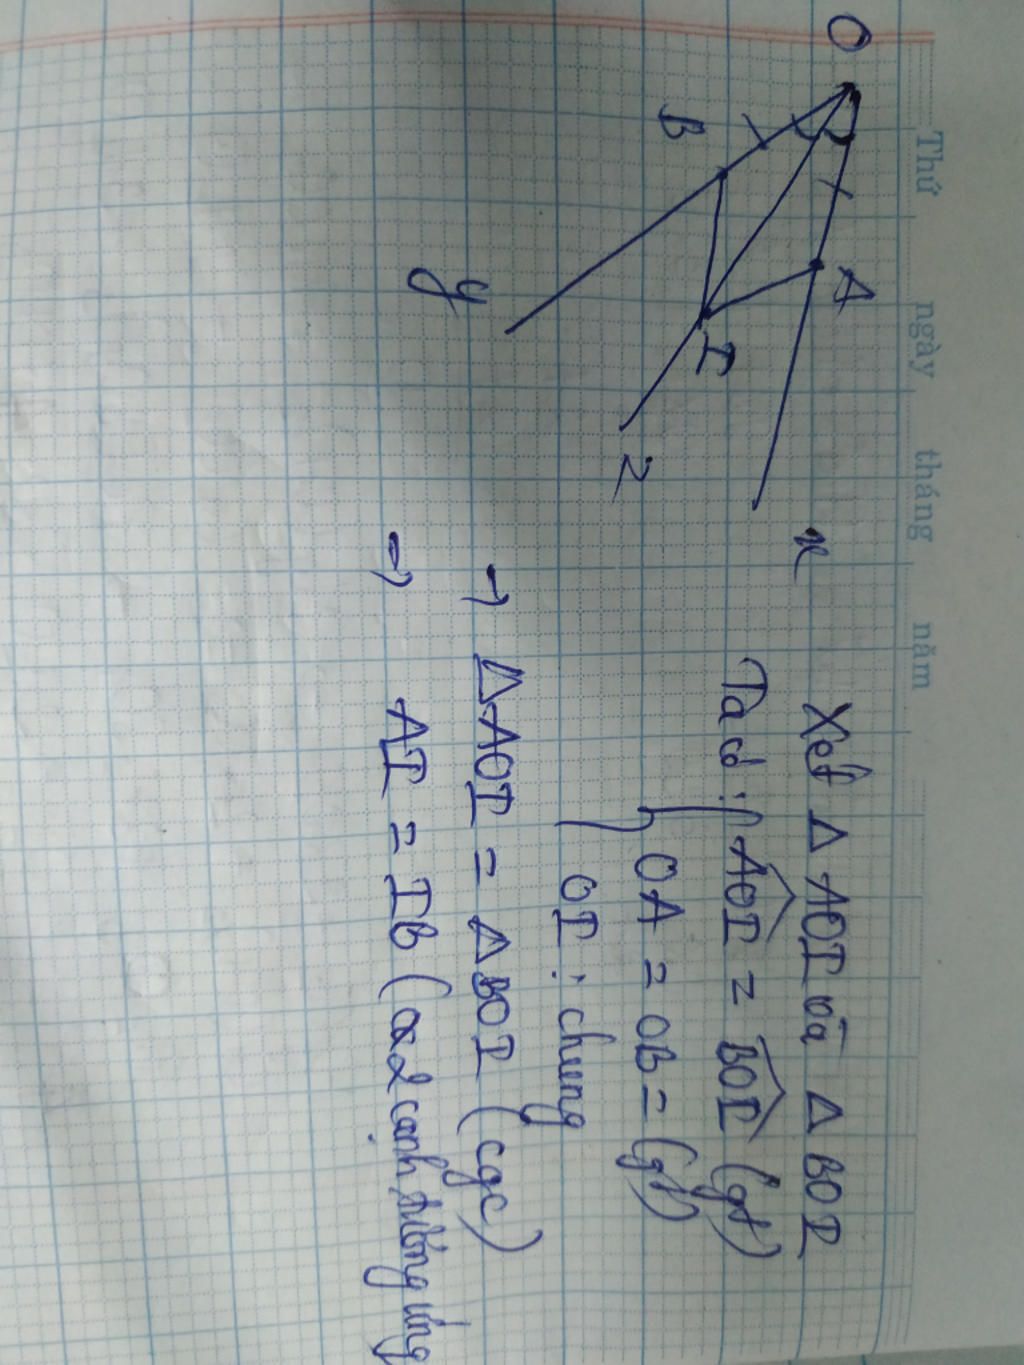 Thứ ngày tháng năm
O
A
x
B
I
y
z
Xét Δ AOI và Δ BOI
Ta có : { AOI = BOI (gt)
OA = OB = (gt)
OI : chung
=> ΔAOI = ΔBOI (cgc)
=> AI = IB ( 2 cạnh tương ứng